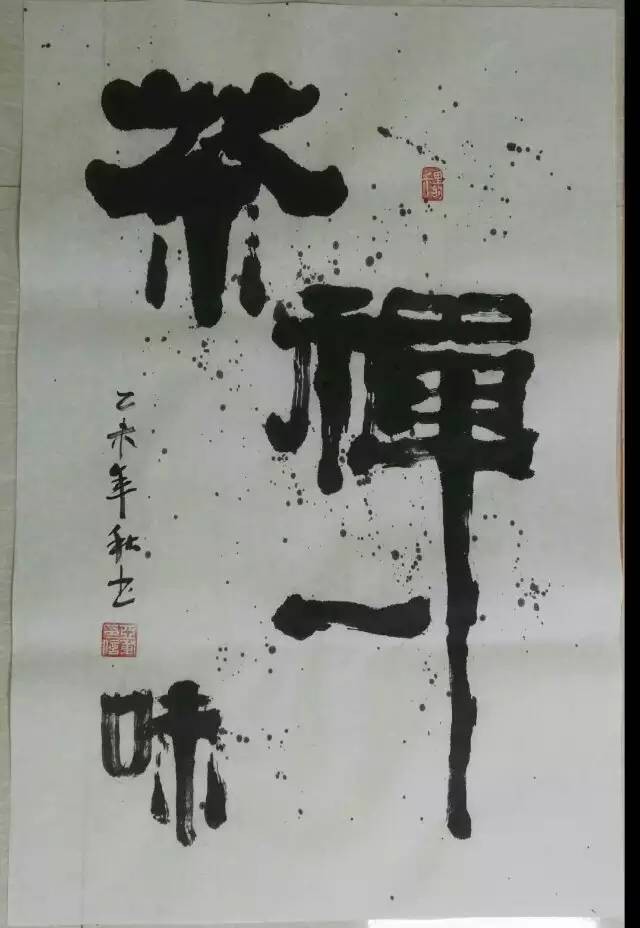 茶禪一味
乙未年秋书